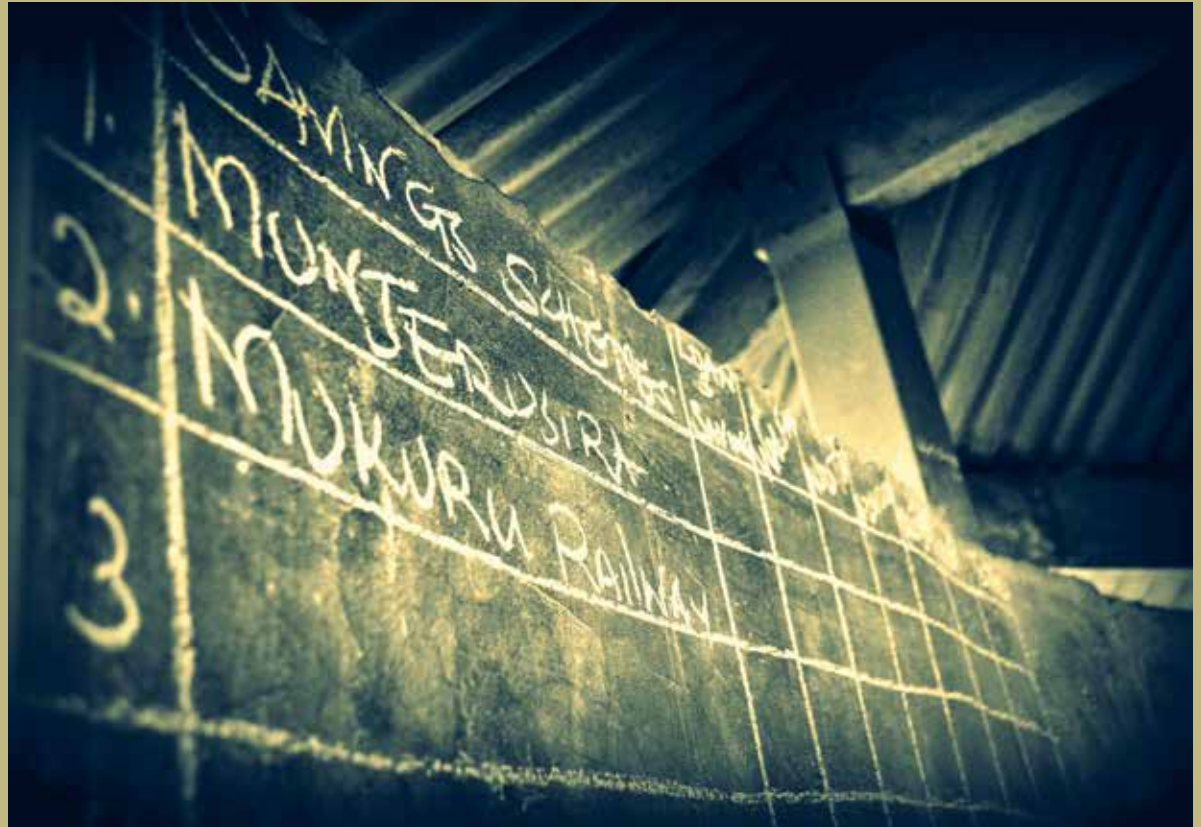 SAVINGS SCHEMES Loan
1. MUNTERUSIRA
2. MUKURU RAILWAY
3